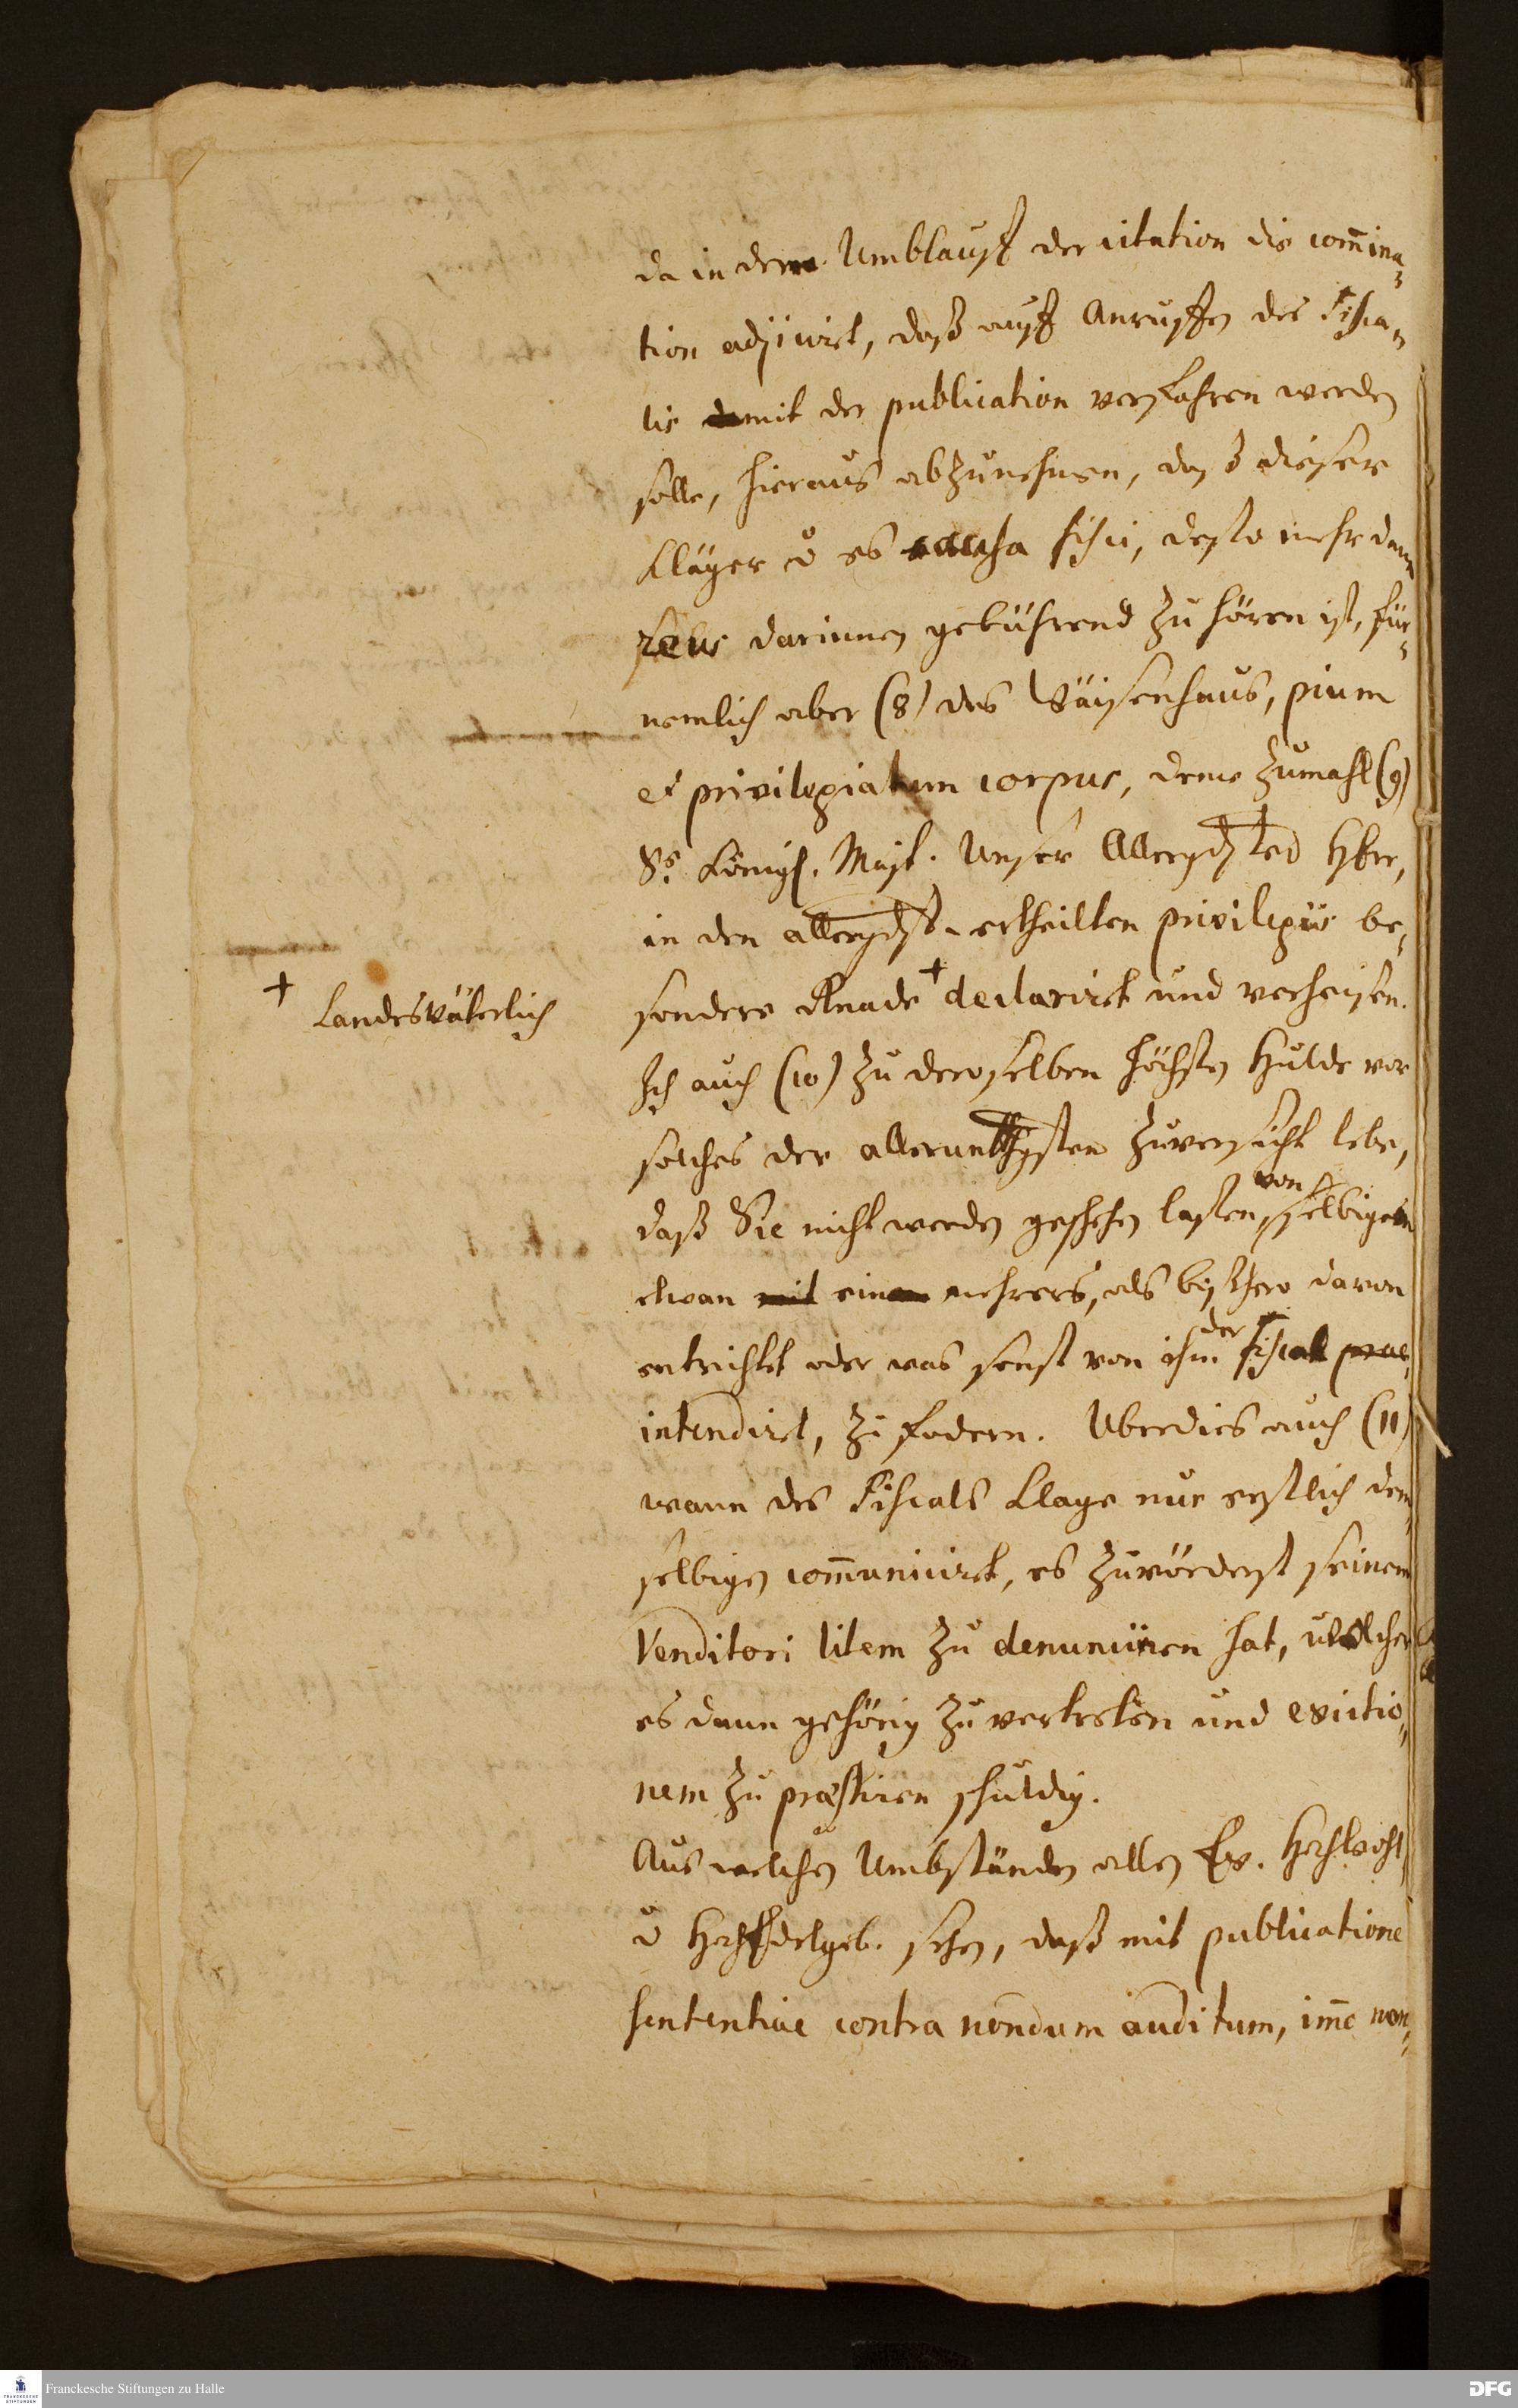 da in dem Umblauff der citation die com̃ina-
tion adjicirt, daß auff Anruffen des Fisca-
lis mit der publication verfahren werden
solle, hieraus abzunehmen, daß dieser
Kläger u. es causa fisci, desto mehr dann
reus darinnen gebührend zu hören ist, für-
nemlich aber (8) das Wäisenhaus, pium
et privilegiatum corpus, deme zumahl (9)
Se. Königl. Majt. Unser Allergdster Herr,
in den allergdst-ertheilten privilegiis be-
sondere Gnade + declarirt und verheisen.
+ Landesväterlich
Ich auch (10) zu deroselben höchsten Hulde vor
solches der allerunthgsten Zuversicht lebe,
daß Sie nicht werden geschehen lassen, von selbigem
etwan mit einem mehrers, als bißhero davon
entrichtet oder was sonst von ihm der fiscal prae
intendirt, zu fodern. Uberdies auch (11)
wann des Fiscals Klage nur erstlich dem-
selbigen com̃unicirt, es zuvörderst seinem
Venditori litem zu denunciiren hat, welcher
es dann gehörig zu vertreten und evictio-
nem zu præstiren schuldig.
Aus welchen Umbständen allen Ew. Hochwohl
u. HochEdelgeb. sehen, daß mit publicatione
sententiae contra nondum auditum, im̃o non-
Franckesche Stiftungen zu Halle
DFG